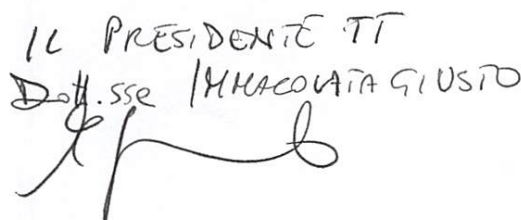 IL PRESIDENTE TT
Dott.sse IMMACOLATA GIUSTO